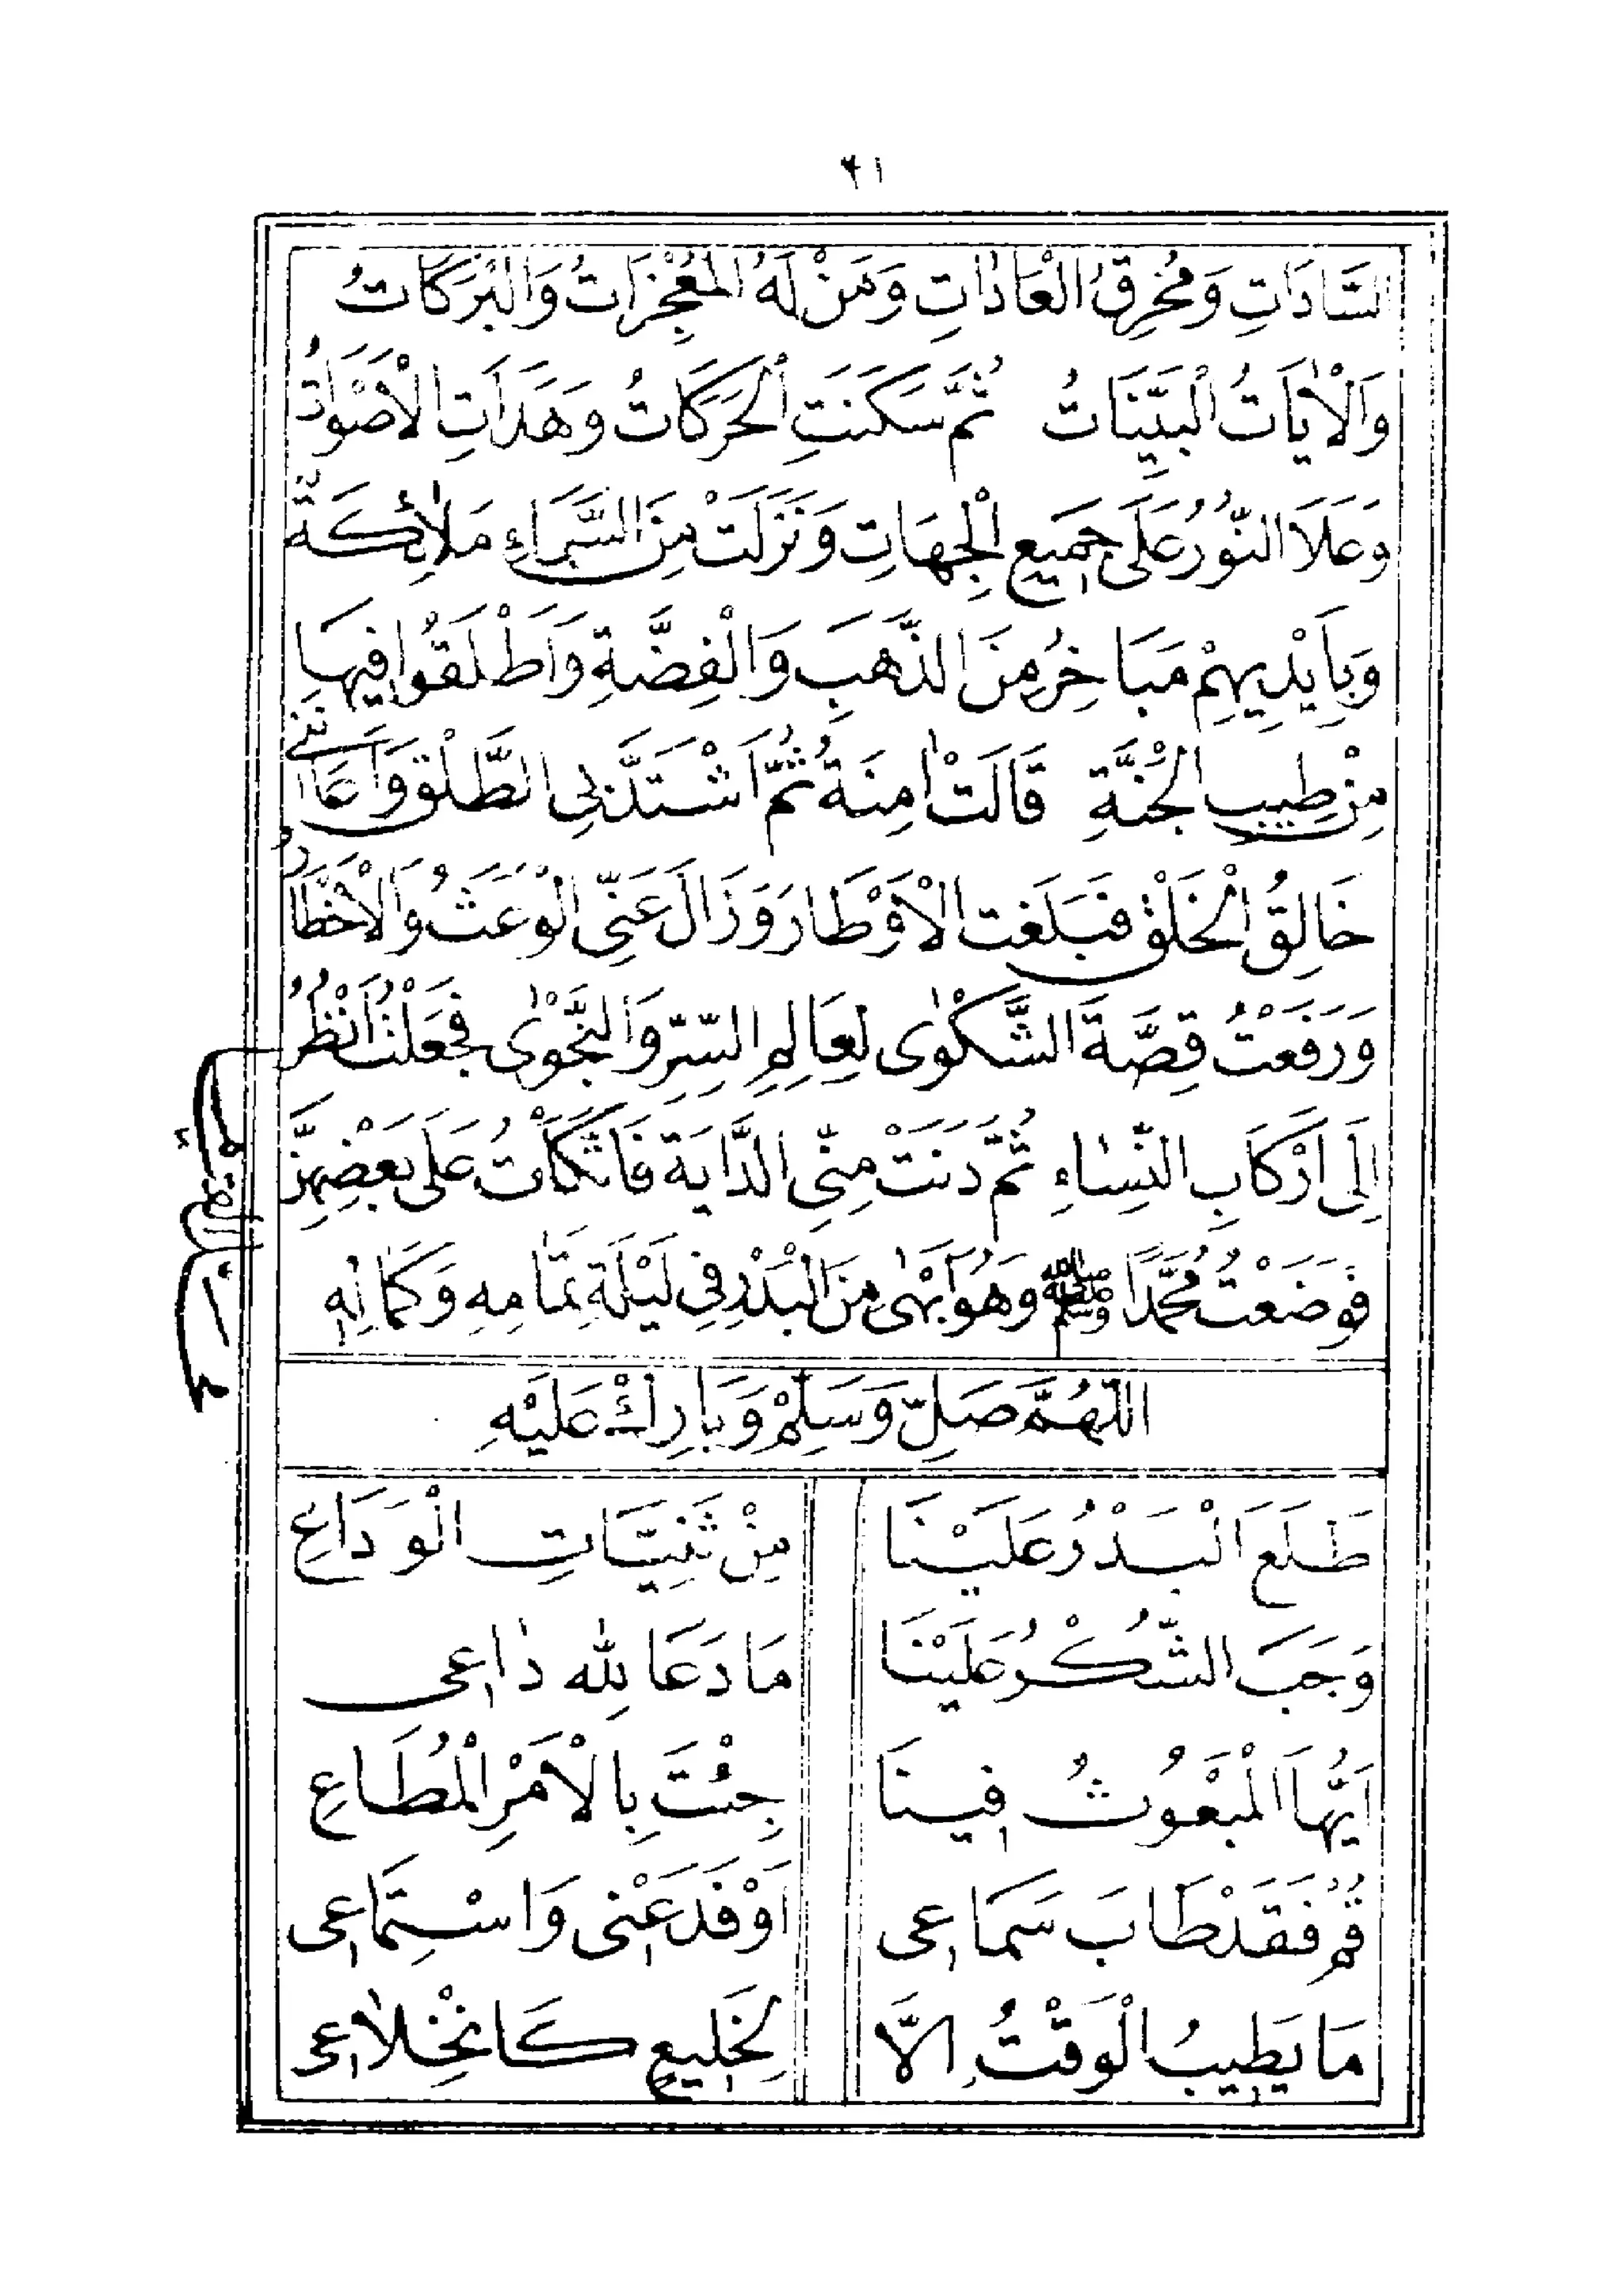 ٢١
السَّادَاتِ وَمُخْرِقُ الْعَادَاتِ وَمَنْ لَهُ الْمُعْجِزَاتُ وَالْبَرَكَاتُ
وَالْاٰيَاتُ الْبَيِّنَاتُ ثُمَّ سَكَنَتِ الْحَرَكَاتُ وَهَدَاَتِ الْاَصْوَاتُ
وَعَلَا النُّوْرُ عَلَى جَمِيْعِ الْجِهَاتِ وَنَزَلَتْ مِنَ السَّمَاءِ مَلَائِكَةٌ
وَبِاَيْدِيهِمْ مَبَاخِرُ مِنَ الذَّهَبِ وَالْفِضَّةِ وَاَطْلَقُوْا فِيْهَا
مِنْ طِيبِ الْجَنَّةِ قَالَتْ اٰمِنَةُ ثُمَّ اَشْتَدَّ بِى الطَّلْقُ وَاَعَانَنِى
خَالِقُ الْخَلْقِ فَبَلَغَت الْاَوْطَارَ وَزَالَ عَنِّى الْوَعَثُ وَالْاَخْطَارُ
وَرَفَعْتُ قِصَّةَ الشَّكْوٰى لِعَالِمِ السِّرِّ وَالنَّجْوٰى فَجَعَلْتُ اَنْظُرُ
اِلَى اَرْكَابِ النِّسَاءِ ثُمَّ دَنَتْ مِنِّى الدَّايَةُ فَاتَّكَاْتُ عَلَى بَعْضِهِنَّ
فَوَضَعْتُ مُحَمَّدًا ﷺ وَهُوَ اَبْهٰى مِنَ الْبَدْرِ فِى لَيْلَةِ تَمَامِهِ وَكَمَالِهِ
اَللّٰهُمَّ صَلِّ وَسَلِّمْ وَبَارِكْ عَلَيْهِ
طَلَعَ الْبَدْرُ عَلَيْنَا مِنْ ثَنِيَّاتِ الْوَدَاعِ
وَجَبَ الشُّكْرُ عَلَيْنَا مَا دَعَا لِلّٰهِ دَاعِى
اَيُّهَا الْمَبْعُوْثُ فِينَا جِئْتَ بِالْاَمْرِ الْمُطَاعِ
قُمْ فَقَدْ طَابَ سَمَاعِى اَوْ فَدَعْنِى وَاسْتِمَاعِى
مَا يَطِيبُ الْوَقْتُ اِلَّا لِخَلِيعٍ كَانْخِلَاعِى